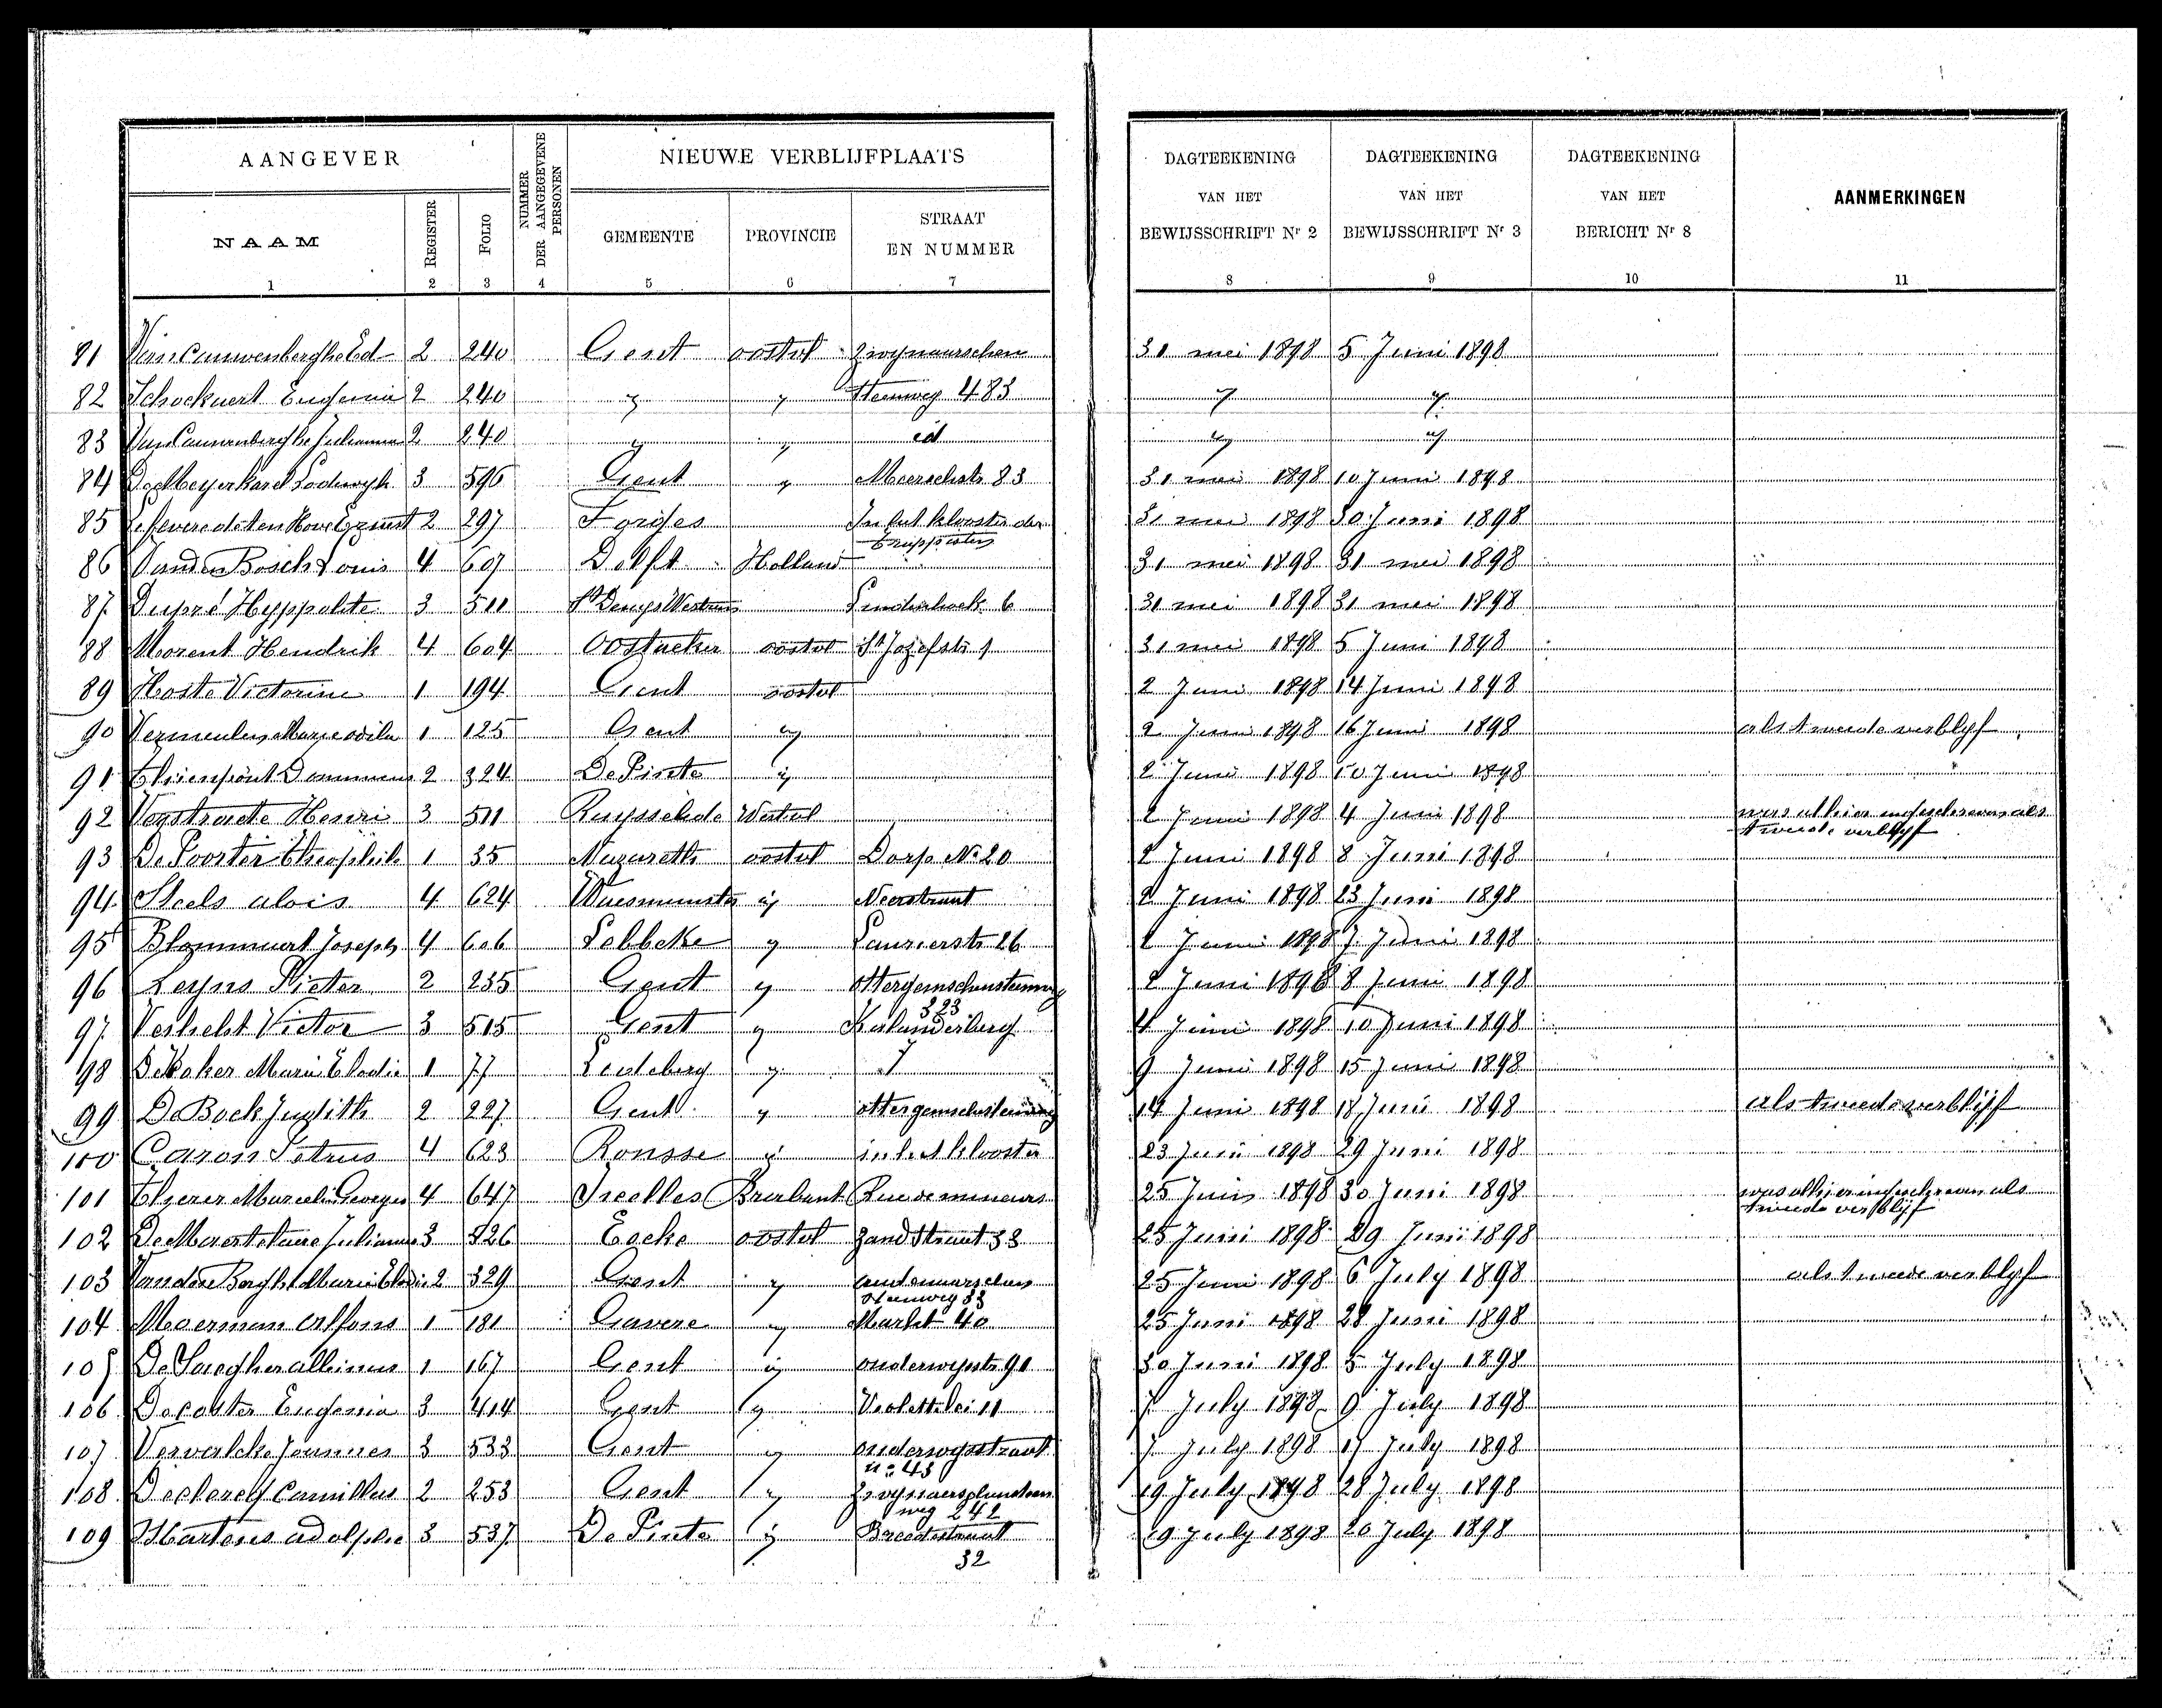 AANGEVER
NUMMER DER AANGEGEVENE PERSONEN
NIEUWE VERBLIJFPLAATS
DAGTEEKENING VAN HET BEWIJSSCHRIFT Nr 2
DAGTEEKENING VAN HET BEWIJSSCHRIFT Nr 3
DAGTEEKENING VAN HET BERICHT Nr 8
AANMERKINGEN
NAAM REGISTER FOLIO GEMEENTE PROVINCIE STRAAT EN NUMMER
1 2 3 4 5 6 7 8 9 10 11
81 Van Cauwenberghe Ed 2 240 Gent oostvl Zwynaarschen 31 mei 1898 5 Juni 1898
82 Schockaert Eugenia 2 240 " " Steenweg 483 " "
83 Van Cauwenberghe Julianna 2 240 " " id " "
84 De Meyer Karel Lodewyk 3 596 Gent " Meerschstr 83 31 mei 1898 10 Juni 1898
85 Lefevere de ten Hove Ernest 2 297 Forges In het klooster der 31 mei 1898 30 Juni 1898
Trappisten
86 Vanden Bosch Louis 4 607 Delft Holland 31 mei 1898 31 mei 1898
87 Dupré Hyppolite 3 511 St Denys Westrem 6 31 mei 1898 31 mei 1898
88 Morent Hendrik 4 604 Oostacker oostvl St Jozefstr 1 31 mei 1898 5 Juni 1898
89 Hoste Victorine 1 194 Gent oostvl 2 Juni 1898 14 Juni 1898
90 Vermeulen Marie Odila 1 125 Gent " 2 Juni 1898 16 Juni 1898 als tweede verblyf
91 Thienpont 2 324 De Pinte " 2 Juni 1898 10 Juni 1898
92 Verstraete Henri 3 511 Ruysselede Westvl 2 Juni 1898 4 Juni 1898 was alhier ingeschreven als
tweede verblyf
93 De Poorter Theophiel 1 35 Nazareth oostvl Dorp No 20 2 Juni 1898 8 Juni 1898
94 Steels alois 4 624 Waesmunster " Neerstraat 2 Juni 1898 23 Juni 1898
95 Blommaert Joseph 4 606 Lebbeke " Laurierstr 26 2 Juni 1898 7 Juni 1898
96 Leyns Pieter 2 235 Gent " ottergemschensteenweg 2 Juni 1898 8 Juni 1898
323
97 Verhelst Victor 3 515 Gent " Kalanderberg 4 Juni 1898 10 Juni 1898
7
98 De Baker Marie Elodie 1 77 Ledeberg " 9 Juni 1898 15 Juni 1898
99 De Bock Judith 2 227 Gent " ottergemschsteenweg 14 Juni 1898 18 Juni 1898 als tweede verblijf
100 Caron Petrus 4 623 Ronsse " in het klooster 23 Juni 1898 29 Juni 1898
101 Marcelin Georges 4 647 Ixelles Brabant Rue de mineurs 25 Juni 1898 30 Juni 1898 was alhier ingeschreven als
tweede verblijf
102 De Maertelaere Julianna 3 826 Eecke oostvl Zandstraat 33 25 Juni 1898 29 Juni 1898
103 Vanden Berghe Marie Elodie 2 329 Gent " oudenaarschen 25 Juni 1898 6 July 1898 als tweede verblyf
Steenweg 83
104 Moerman Alfons 1 181 Gavere " Markt 40 25 Juni 1898 28 Juni 1898
105 De Saegher albinus 1 167 Gent " onderwysstr 91 30 Juni 1898 5 July 1898
106 Decoster Eugenia 3 414 Gent " Violettelei 11 7 July 1898 9 July 1898
107 Vervalcke Joannes 3 533 Gent " onderwysstraat 7 July 1898 17 July 1898
no 43
108 Declercq Camillus 2 253 Gent " 19 July 1898 28 July 1898
weg 242
109 Martens adolphe 3 537 De Pinte " Breedestraat 19 July 1898 20 July 1898
32